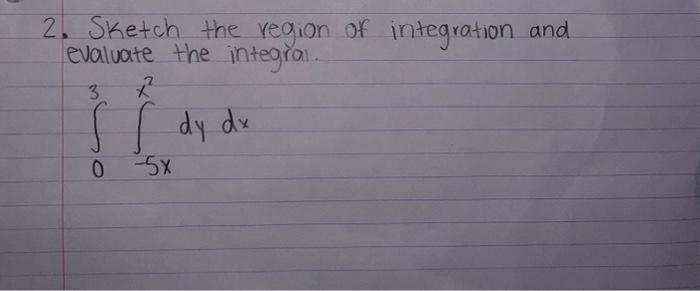 2. Sketch the region of integration and
evaluate the integral.
3 x²
∫ ∫ dy dx
0 -5x